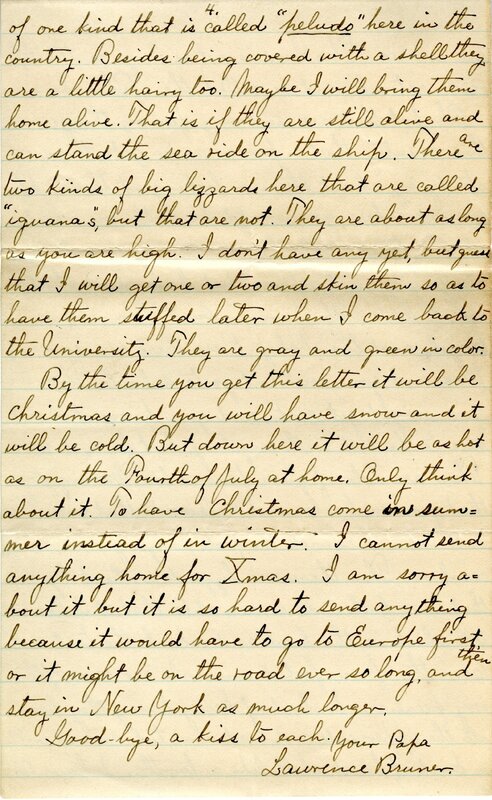 4.
of one kind that is called "peludo" here in the
country. Besides being covered with a shell they
are a little hairy too. Maybe I will bring them
home alive. That is if they are still alive and
can stand the sea ride on the ship. There are
two kinds of big lizzards here that are called
"iguanas", but that are not. They are about as long
as you are high. I don't have any yet, but guess
that I will get one or two and skin them so as to
have them stuffed later when I come back to
the University. They are gray and green in color.
By the time you get this letter it will be
Christmas and you will have snow and it
will be cold. But down here it will be as hot
as on the Fourth of July at home. Only think
about it. To have Christmas come in sum=
mer instead of in winter. I cannot send
anything home for Xmas. I am sorry a-
bout it but it is so hard to send anything
because it would have to go to Europe first
or it might be on the road ever so long, and then
stay in New York as much longer.
Good-bye, a kiss to each. Your Papa
Lawrence Bruner.